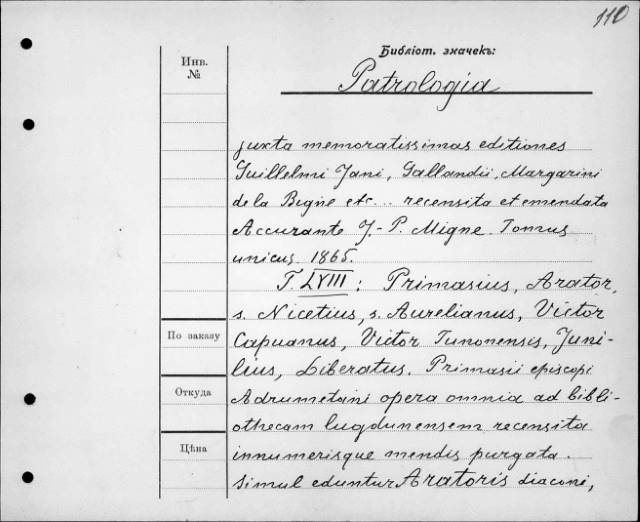 110
Библіот. значекъ:
Инв.
№
Patrologia
juxta memoratissimas editiones
Guillelmi Jani, Gallandii, Margarini
de la Bigne etc... recensita et emendata
Accurante J.-P. Migne. Tomus
unicus. 1865.
T. LXVIII: Primasius, Arator,
s. Nicetius, s. Aurelianus, Victor
По заказу
Capuanus, Victor Tunonensis, Juni-
lius, Liberatus. Primasii episcopi
Откуда
Adrumetani opera omnia ad bibli-
othecam lugdunensem recensita
Цѣна
innumerisque mendis purgata.
Simul eduntur Aratoris diaconi,